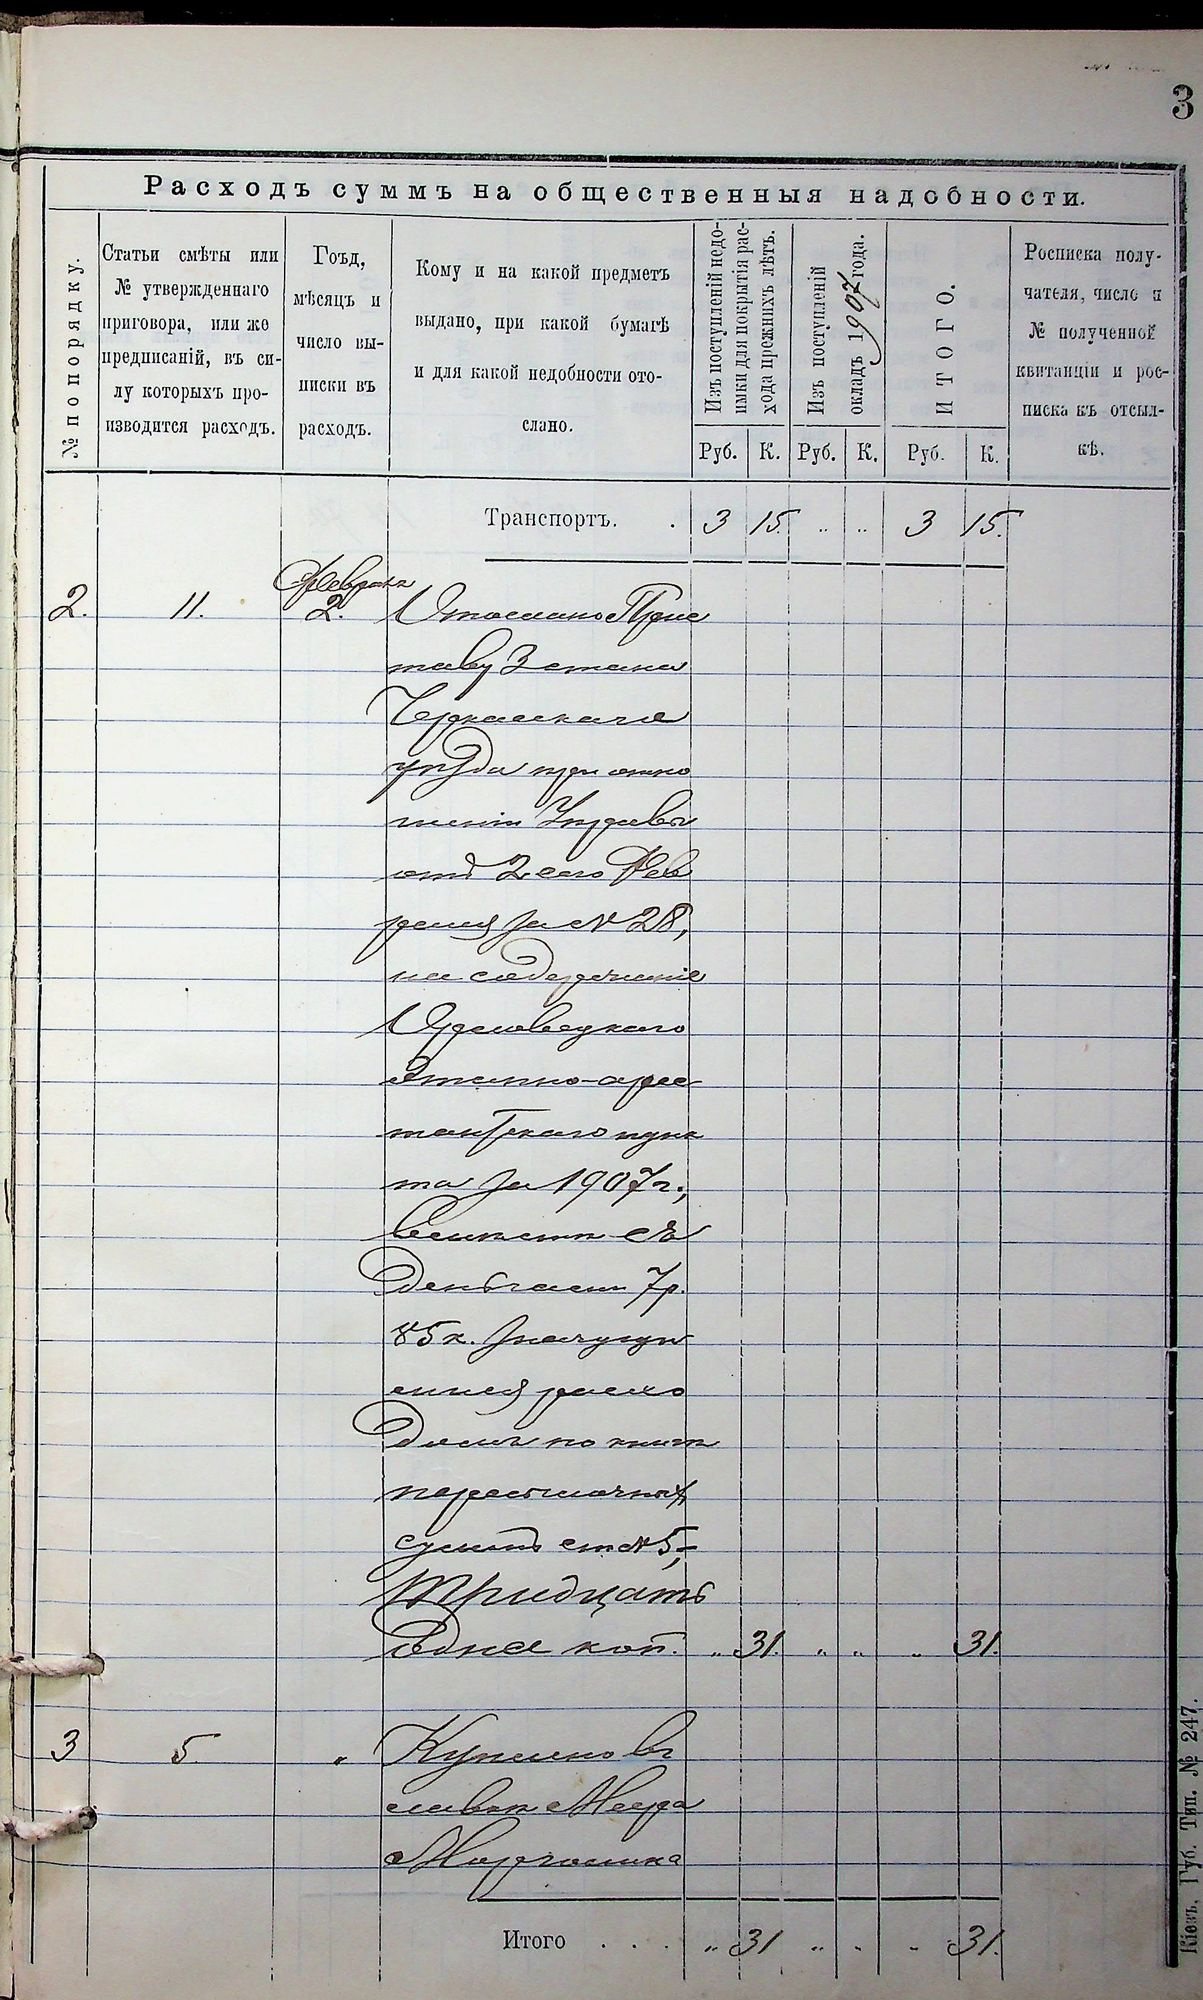 3
Расходъ суммъ на общественныя надобности.
№ по порядку.
Статьи смѣты или
№ утвержденнаго
приговора, или же
предписаній, въ си-
лу которыхъ про-
изводится расходъ.
Годъ,
мѣсяцъ и
число вы-
писки въ
расходъ.
Кому и на какой предметъ
выдано, при какой бумагѣ
и для какой недобности ото-
слано.
Изъ поступленій недо-
имки для покрытія рас-
хода прежнихъ лѣтъ.
Изъ поступленій
окладъ 1907 года.
ИТОГО.
Росписка полу-
чателя, число и
№ полученной
квитанціи и рос-
писка къ отсыл-
кѣ.
Руб. К. Руб. К. Руб. К.
Транспортъ. . 3 15. „ „ 3 15.
Февраля
2. 11. 2. Отослано Прис
таву 3 стана
Черкасскаго
уѣзда при отно
шеніи Управы
отъ 2 сего Фев
раля за № 28,
на содержаніе
Орловецкаго
этапно-арес
тантскаго пунк
та за 1907 г.,
вмѣстѣ съ
деньгами 7 р.
85 к. значущи
мися расхо
домъ по книгѣ
пересылочныхъ
суммъ ст № 5,-
тридцать
одна коп. „ 31. „ „ „ 31.
3 5. „ Куплено въ
лавкѣ Меера
Итого . . . „ 31 „ „ „ 31.
Кіевъ, Губ. Тип. № 247.